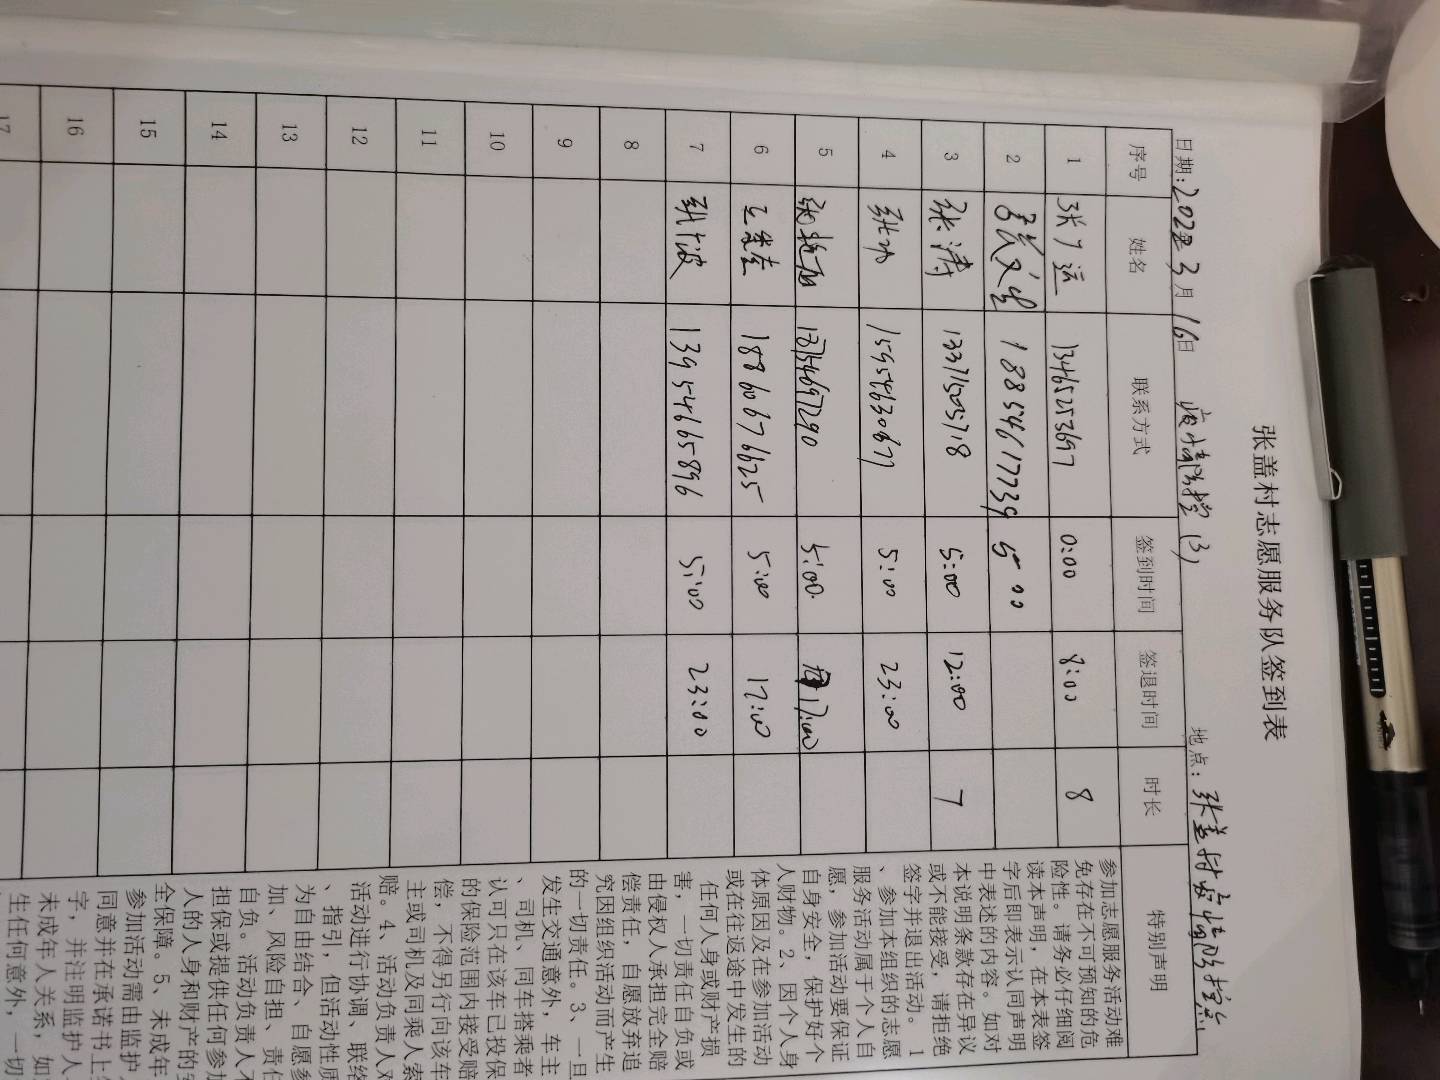 张盖村志愿服务队签到表
日期:2022年3月16日 疫情防控(3) 地点:张盖村疫情防控点
序号 姓名 联系方式 签到时间 签退时间 时长 特别声明
1 张广运 13465253697 0:00 8:00 8
2 18854617739 5:00
3 张涛 13371505718 5:00 12:00 7
4 张 15954630677 5:00 23:00
5 张 5:00 17:00
6 18860676625 5:00 17:00
7 张广波 13954665896 5:00 23:00
8
9
10
11
12
13
14
15
16
17
参加志愿服务活动难
免存在不可预知的危
险性。请务必仔细阅
读本声明,在本表签
字后即表示认同声明
中表述的内容。如对
本说明条款存在异议
或不能接受,请拒绝
签字并退出活动。1
、参加本组织的志愿
服务活动属于个人自
愿,参加活动要保证
自身安全,保护好个
人财物。2、因个人身
体原因及在参加活动
或在往返途中发生的
任何人身或财产损
害,一切责任自负或
由侵权人承担完全赔
偿责任,自愿放弃追
究因组织活动而产生
的一切责任。3、一旦
发生交通意外,车主
、司机、同车搭乘者
认可只在该车已投保
的保险范围内接受赔
偿,不得另行向该车
主或司机及同乘人索
赔。4、活动负责人对
活动进行协调、联络
、指引,但活动性质
为自由结合、自愿参
加、风险自担、责任
自负。活动负责人不
担保或提供任何参加
人的人身和财产的安
全保障。5、未成年
参加活动需由监护人
同意并在承诺书上签
字,并注明监护人
未成年人关系,如
生任何意外,一切